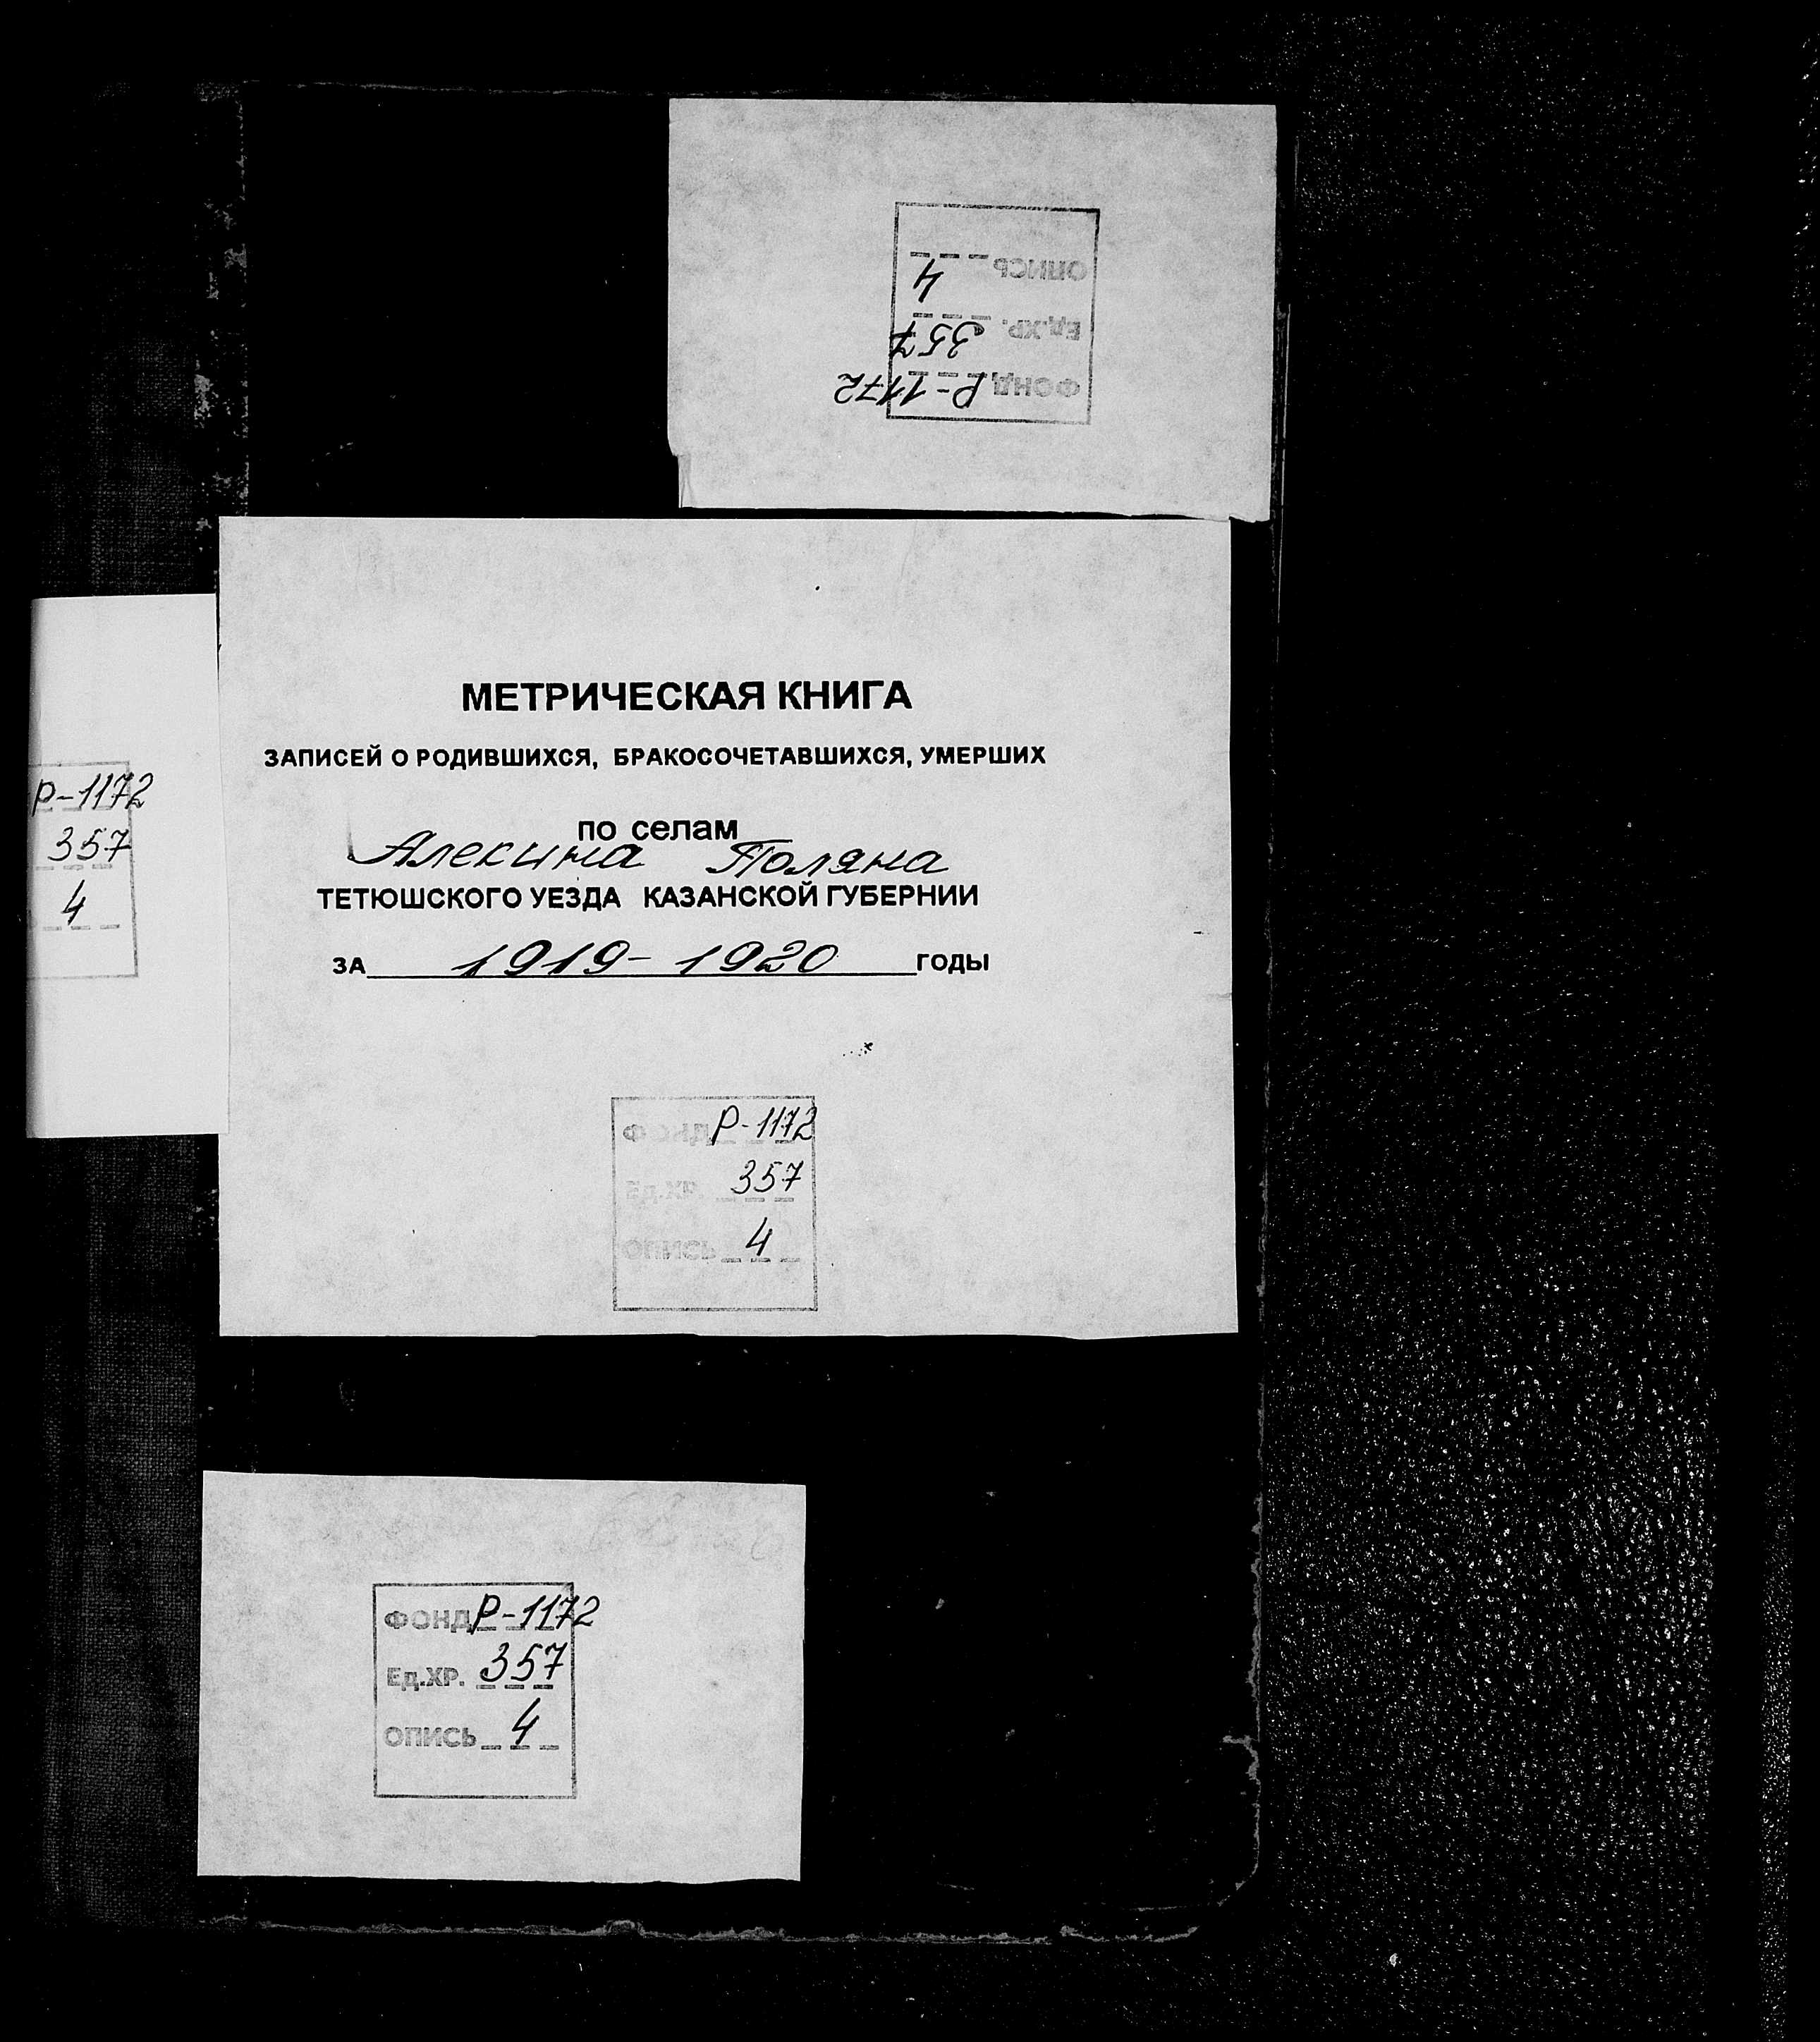 ФОНД Р-1172
Ед.ХР. 357
ОПИСЬ 4
МЕТРИЧЕСКАЯ КНИГА
ЗАПИСЕЙ О РОДИВШИХСЯ, БРАКОСОЧЕТАВШИХСЯ, УМЕРШИХ
по селам
Алекина Поляна
ТЕТЮШСКОГО УЕЗДА КАЗАНСКОЙ ГУБЕРНИИ
ЗА 1919-1920 ГОДЫ
Р-1172
357
4
ФОНД Р-1172
Ед.ХР. 357
ОПИСЬ 4
ФОНД Р-1172
Ед.ХР. 357
ОПИСЬ 4